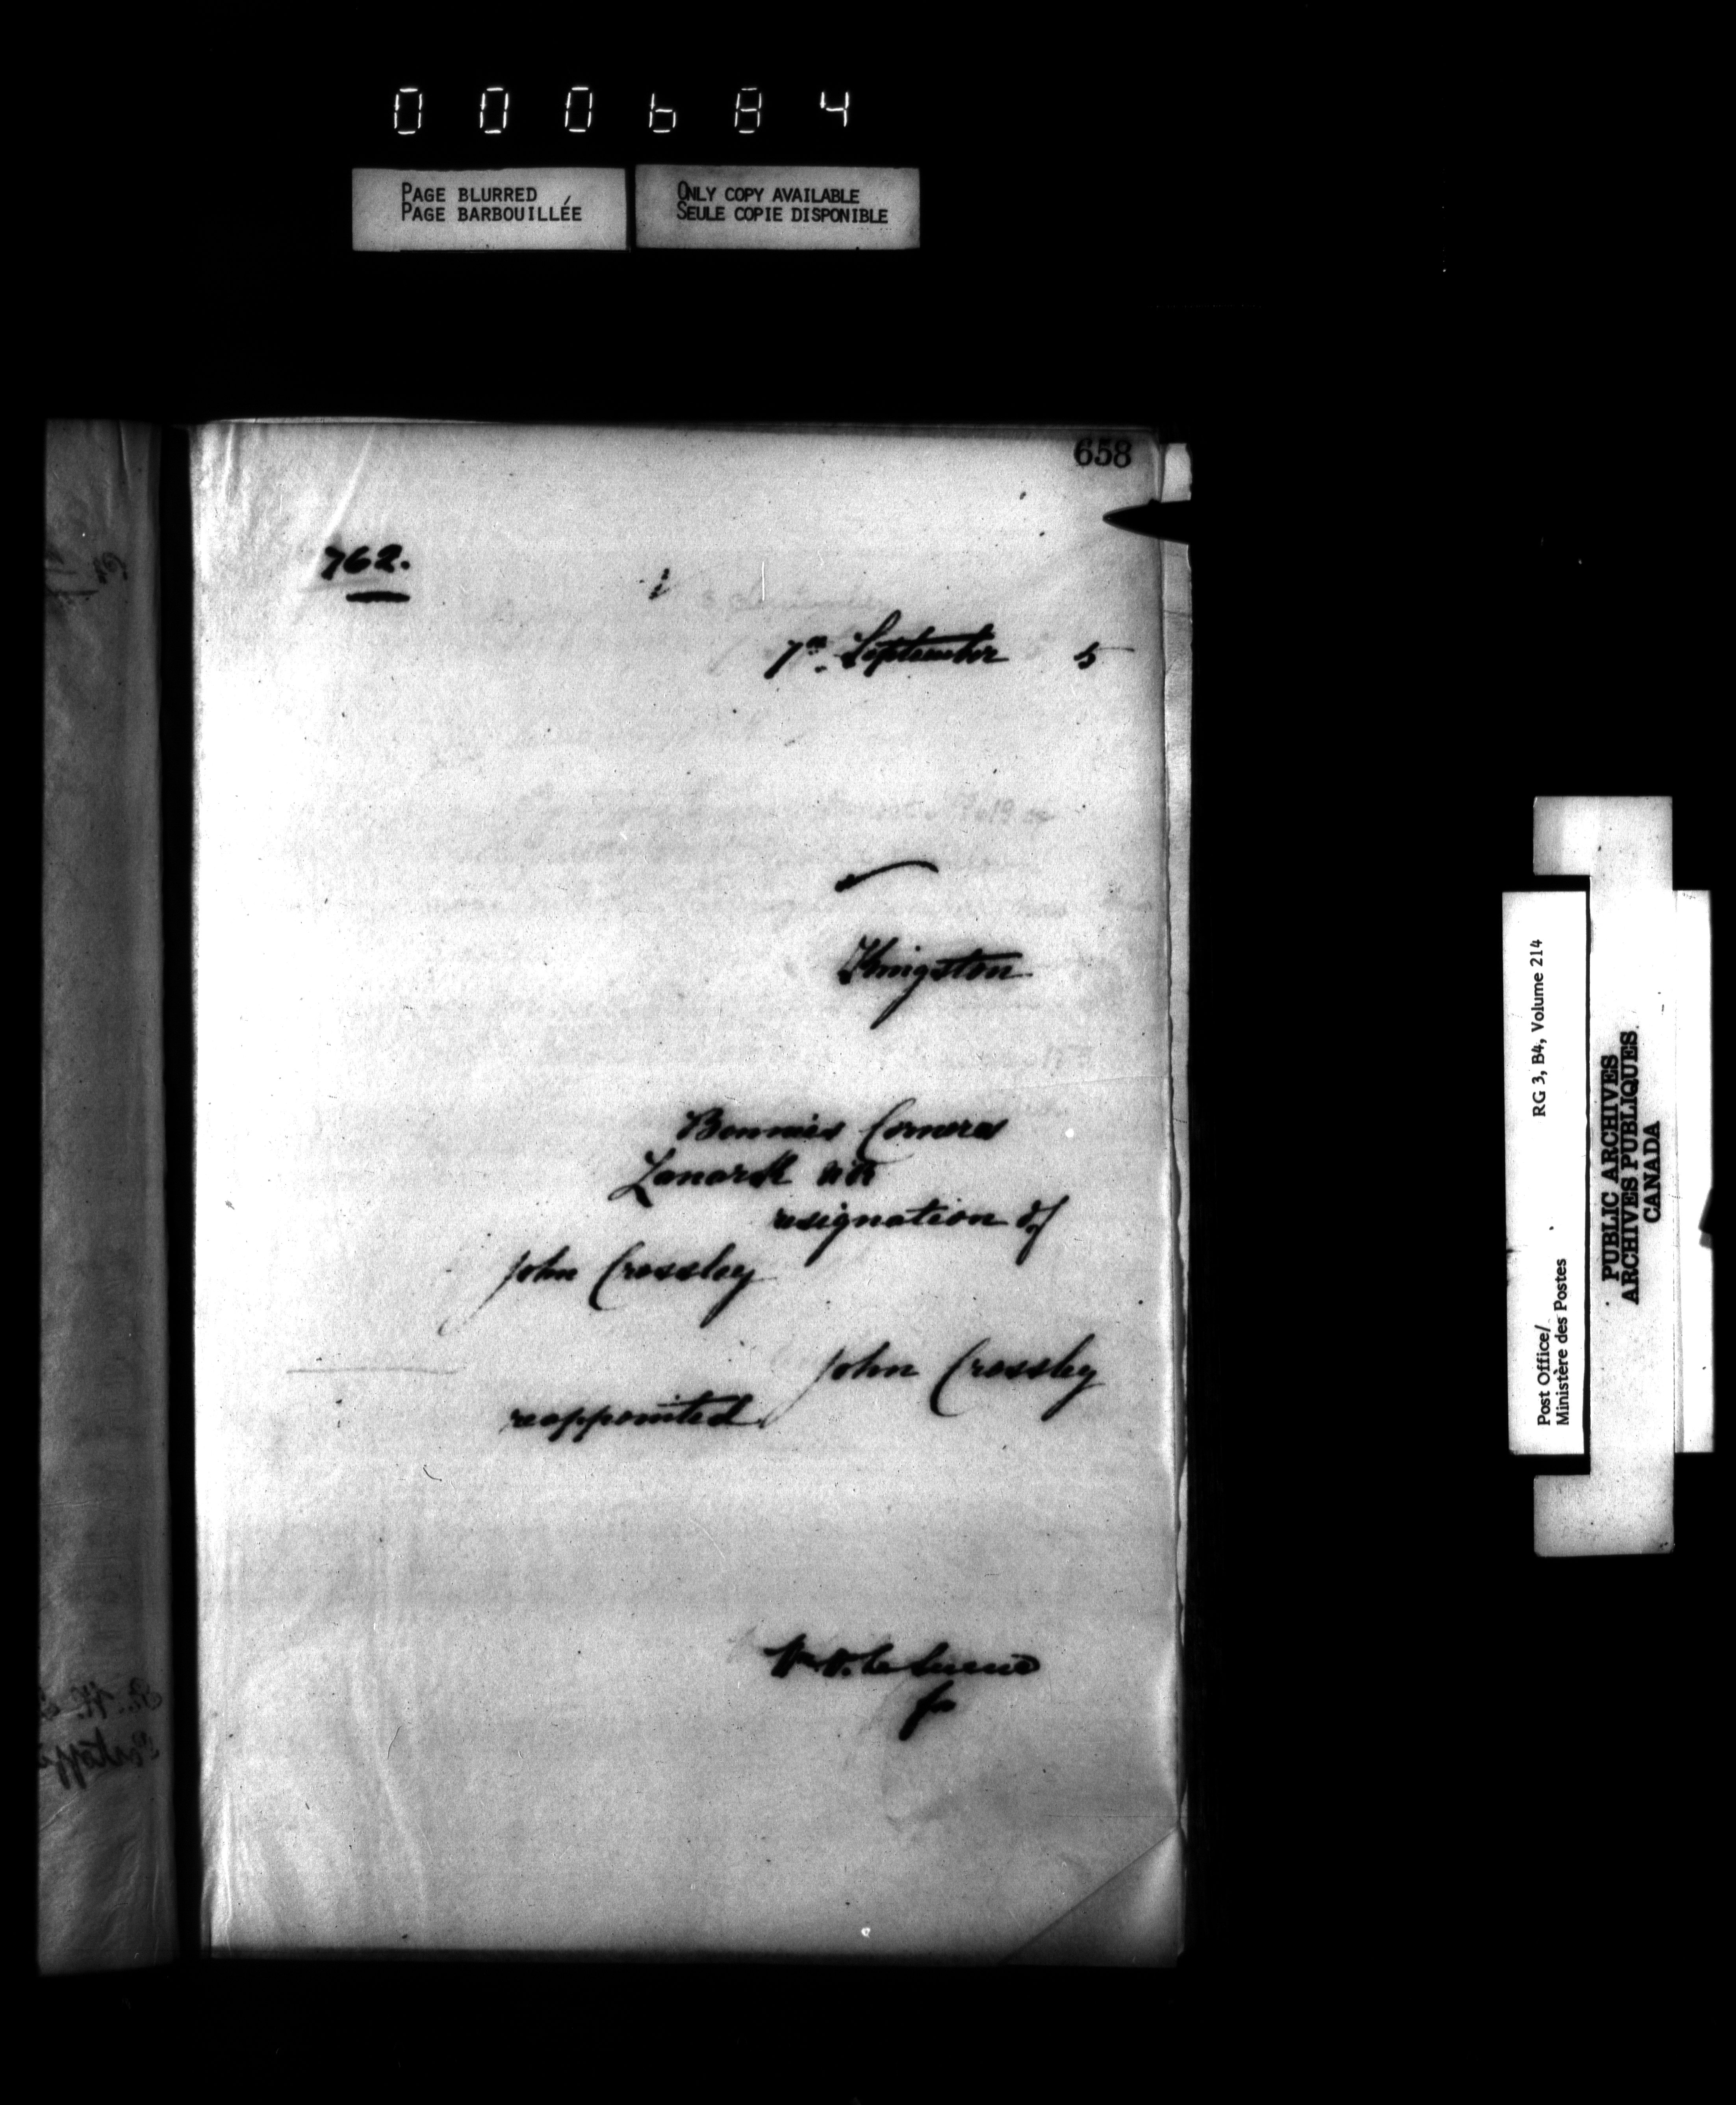 000684
PAGE BLURRED
PAGE BARBOUILLÉE
ONLY COPY AVAILABLE
SEULE COPIE DISPONIBLE
658
762.
7th September 5
Kingston
Bennies Corners
Lanark NR
resignation of
John Crossley
John Crossley
reappointed
Post Office/ RG 3, B4, Volume 214
Ministère des Postes
PUBLIC ARCHIVES
ARCHIVES PUBLIQUES
CANADA